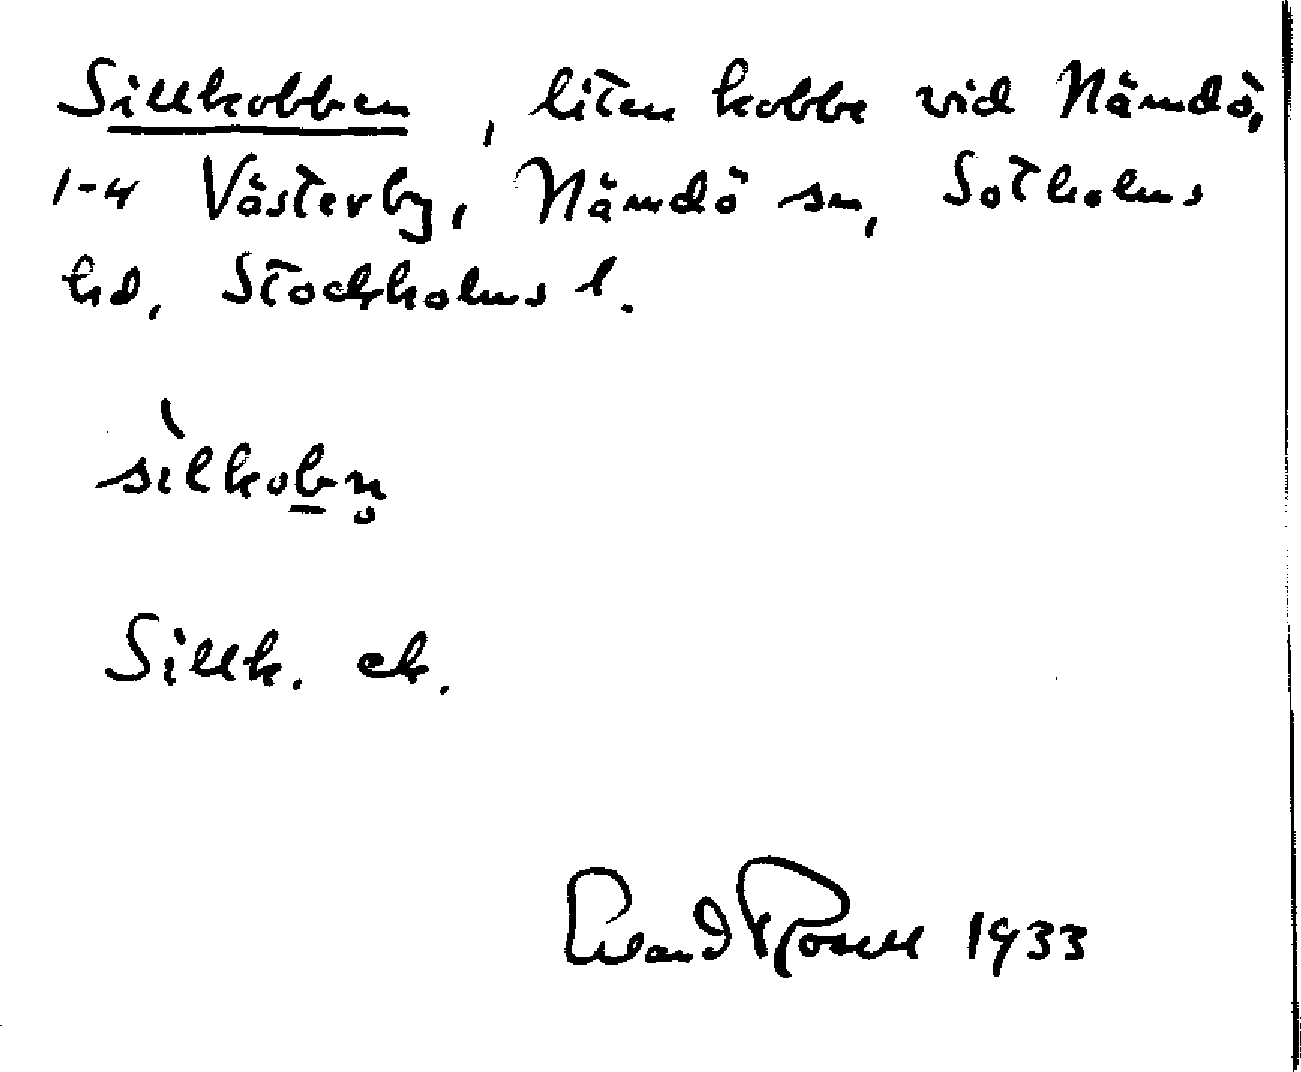 Sillkobben, liten kobbe vid Nämdö,
1-4 Västerby, Nämdö sn, Sotholms
hd, Stockholms l.
sìlkobn̥
Sillk. ek.
Evand Rosell 1933